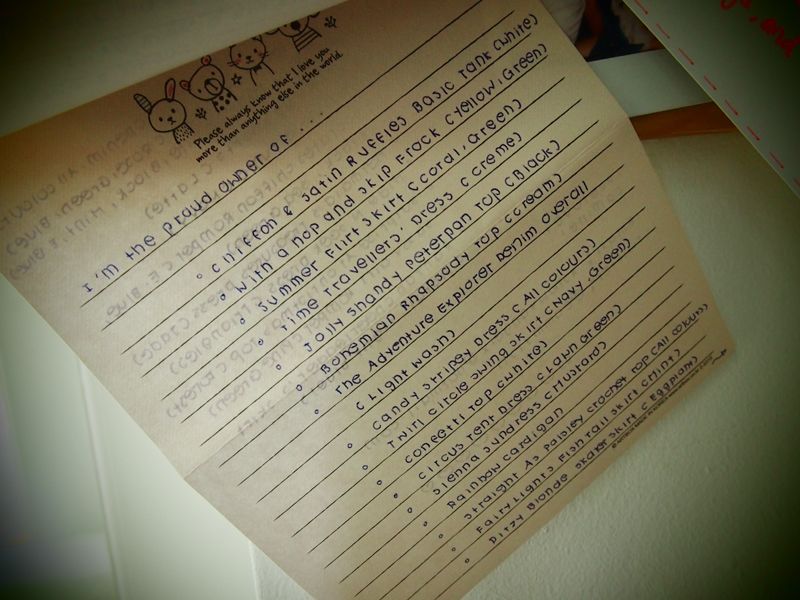 Please always know that I love you
more than anything else in the world.
I'm the proud owner of ....
° Chiffon & Satin Ruffles Basic Tank (White)
° With a hop and skip Frock (Yellow, Green)
° Summer Flirt Skirt (Coral, Green)
° Time Travellers' Dress (Creme)
° Jolly Shandy Peterpan Top (Black)
° Bohemian Rhapsody Top (Cream)
° The Adventure Explorer Denim Overall
(Light Wash)
° Candy Stripey Dress (All Colours)
° Twirl Circle Swing Skirt (Navy, Green)
° Confetti Top (White)
° Circus Tent Dress (Lawn Green)
° Sienna Sundress (Mustard)
° Rainbow Cardigan
° Straight As Paisley Crochet Top (All Colours)
° Fairy Lights Fishtail Skirt (Mint)
° Ditzy Blonde Skater Skirt (Eggplant)
and